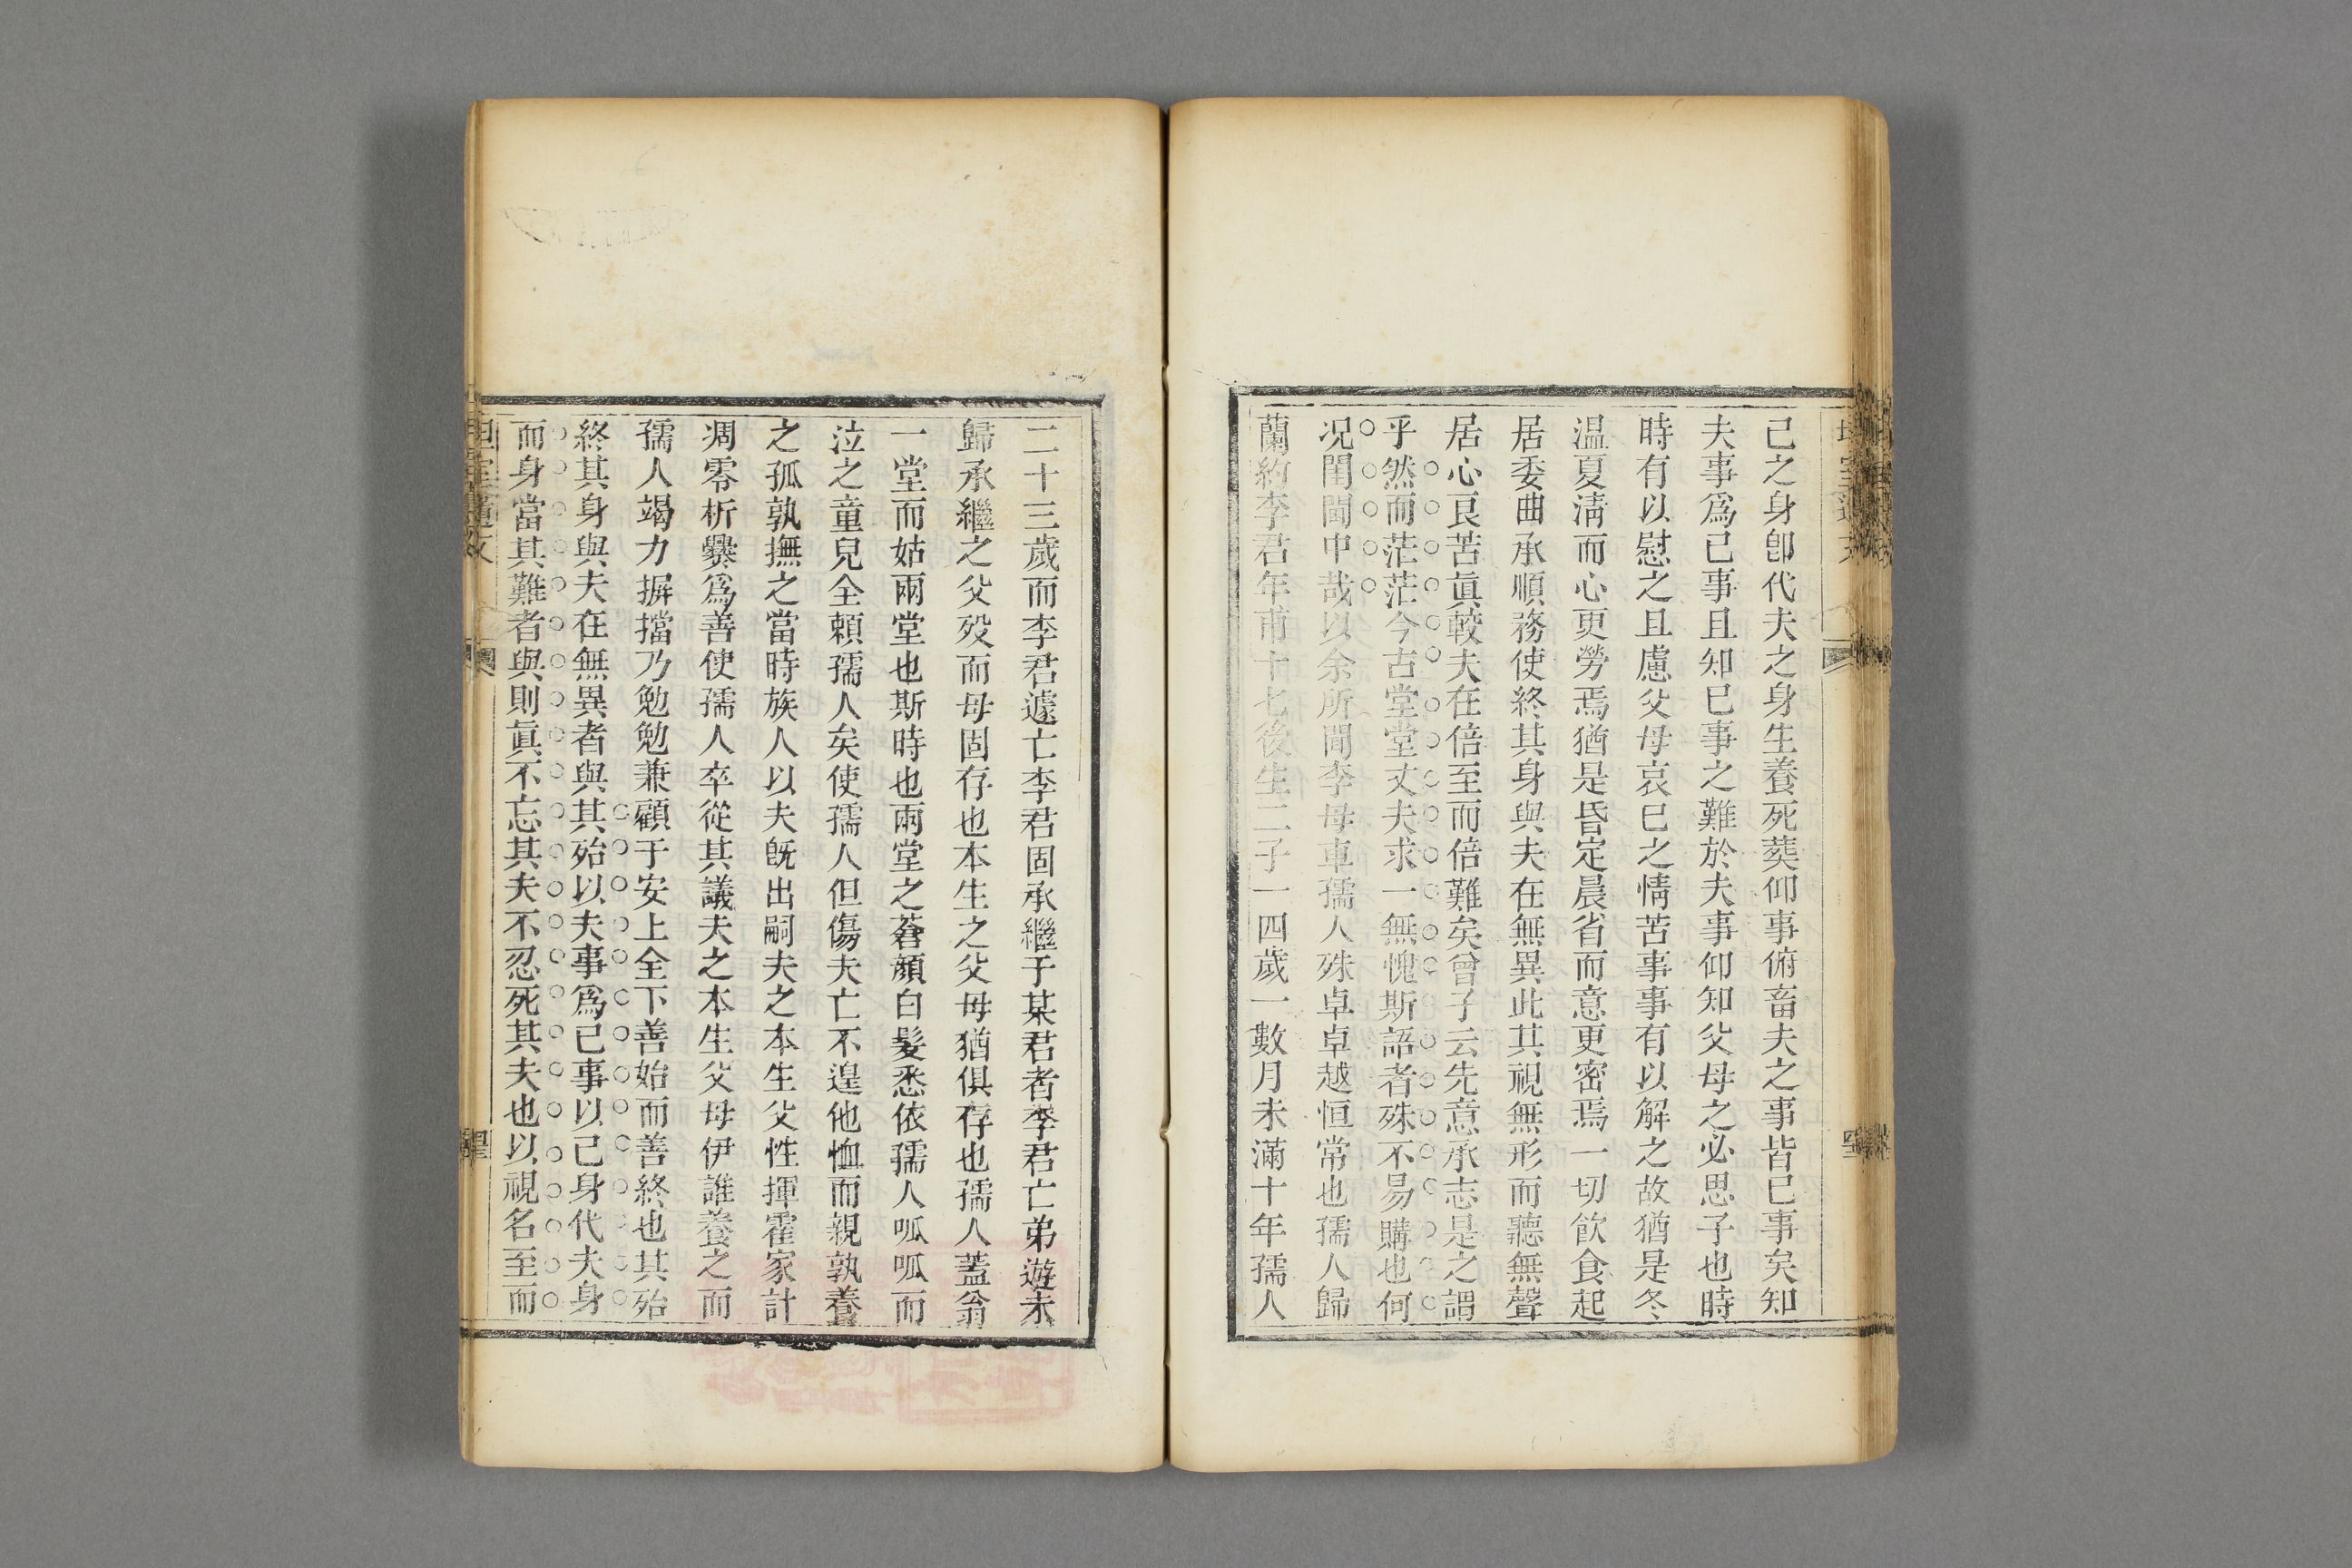 己之身卽代夫之身生養死葬仰事俯畜夫之事皆已事矣知
夫事爲己事且知已事之難於夫事仰知父母之必思子也時
時有以慰之且慮父母哀已之情苦事事有以解之故猶是冬
温夏淸而心更勞焉猶是昏定晨省而意更密焉一切飮食起
居委曲承順務使終其身與夫在無異此其視無形而聽無聲
居心良苦眞較夫在倍至而倍難矣曾子云先意承志是之謂
乎然而茫茫今古堂堂丈夫求一無愧斯語者殊不易購也何
况閨閫中哉以余所聞李母車孺人殊卓卓越恒常也孺人歸
蘭約李君年甫十七後生二子一四歲一數月未滿十年孺人
二十三歲而李君遽亡李君固承繼于某君者李君亡弟遊未
歸承繼之父殁而母固存也本生之父母猶俱存也孺人蓋翁
一堂而姑兩堂也斯時也兩堂之蒼顏白髮悉依孺人呱呱而
泣之童兒全賴孺人矣使孺人但傷夫亡不遑他恤而親孰養
之孤孰撫之當時族人以夫旣出嗣夫之本生父性揮霍家計
凋零析爨爲善使孺人卒從其議夫之本生父母伊誰養之而
孺人竭力摒擋乃勉勉兼顧于安上全下善始而善終也其殆
終其身與夫在無異者與其殆以夫事爲己事以己身代夫身
而身當其難者與則眞不忘其夫不忍死其夫也以視名至而